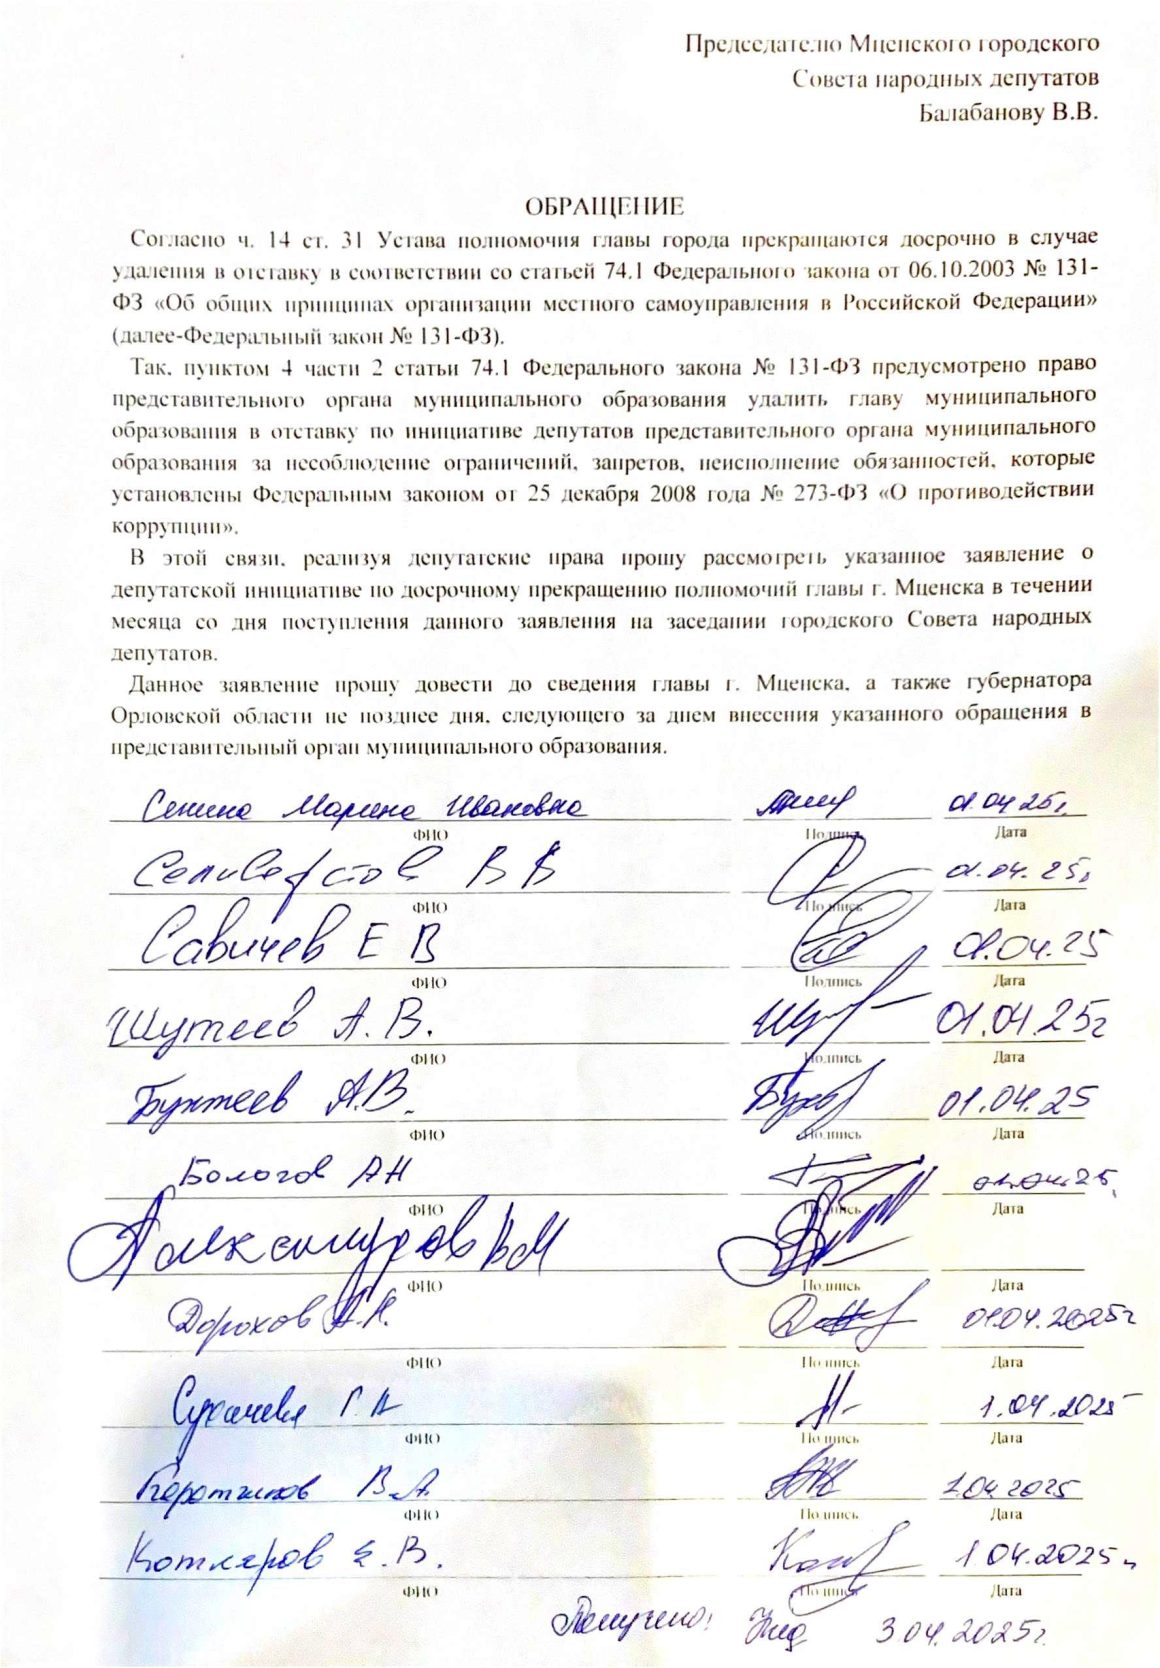 Председателю Мценского городского
Совета народных депутатов
Балабанову В.В.
ОБРАЩЕНИЕ
Согласно ч. 14 ст. 31 Устава полномочия главы города прекращаются досрочно в случае
удаления в отставку в соответствии со статьей 74.1 Федерального закона от 06.10.2003 № 131-
ФЗ «Об общих принципах организации местного самоуправления в Российской Федерации»
(далее-Федеральный закон № 131-ФЗ).
Так, пунктом 4 части 2 статьи 74.1 Федерального закона № 131-ФЗ предусмотрено право
представительного органа муниципального образования удалить главу муниципального
образования в отставку по инициативе депутатов представительного органа муниципального
образования за несоблюдение ограничений, запретов, неисполнение обязанностей, которые
установлены Федеральным законом от 25 декабря 2008 года № 273-ФЗ «О противодействии
коррупции».
В этой связи, реализуя депутатские права прошу рассмотреть указанное заявление о
депутатской инициативе по досрочному прекращению полномочий главы г. Мценска в течении
месяца со дня поступления данного заявления на заседании городского Совета народных
депутатов.
Данное заявление прошу довести до сведения главы г. Мценска, а также губернатора
Орловской области не позднее дня, следующего за днем внесения указанного обращения в
представительный орган муниципального образования.
Сенина Марина Ивановна 01.04 25г.
ФИО Подпись Дата
Селиверстов В В 01.04. 25г
ФИО Подпись Дата
Савичев Е В 01.04.25
ФИО Подпись Дата
Шутеев А.В. 01.04.25г
ФИО Подпись Дата
Бунтеев А.В. 01.04.25
ФИО Подпись Дата
Бологов АН 01.04.25
ФИО Подпись Дата
Александров ВМ
ФИО Подпись Дата
Дорохов А.Н. 01.04.2025г
ФИО Подпись Дата
Сухачева Г.А 1.04.2025
ФИО Подпись Дата
Коротчиков В.А. 1.04 2025
ФИО Подпись Дата
Котляров Е.В. 1 04.2025г
ФИО Подпись Дата
Получено: 3 04.2025г.